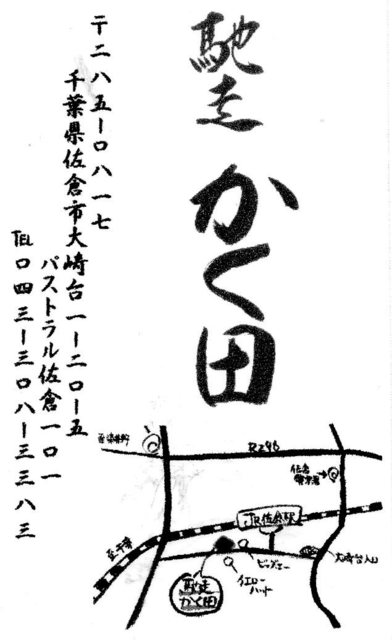 馳走 かく田
〒二八五ー〇八一七
千葉県佐倉市大崎台一ー二〇ー五
パストラル佐倉一〇一
TEL 〇四三ー三〇八ー三三八三
至染井野
R296
佐倉
警察署
JR佐倉駅
至千葉
大崎台入口
ビッグエー
イエロー
ハット
馳走
かく田